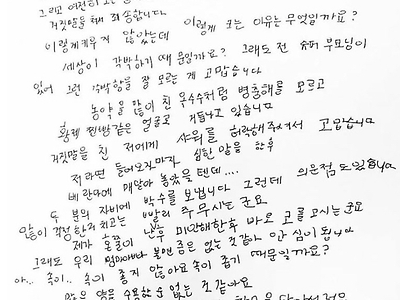 그리고 여전히
거짓말을 해서 죄송합니다
이렇게 키우지 않았는데 이렇게 크는 이유는 무엇일까요?
세상이 각박하기 때문일까요? 그래도 전 슈퍼 부모님이
있어 그런 각박함을 잘 모르는 게 고맙습니다
농약을 많이 친 옥수수처럼 병충해를 모르고
황제 찐빵같은 얼굴로 거듭나고 있습니다
거짓말을 친 저에게 샤워를 허락해주셔서 고맙습니다
저라면 들어오지마자 심한 말을 한후
베란다에 매달아 놓았을텐데....
두 분의 자비에 박수를 보냅니다 그런데 의문점도있습니다
많이 걱정하셔치고는 빨리 주무시는군요
제가 혼줄이 난후 미안해한후 바로 코를 고시는군요
그래도 우리 엄마아빠 불면증은 없는 것같아 안심이 됩니다
아.. 속이.. 속이 좋지 않아요 속이 좁기 때문일까요?
없는 것 같아요